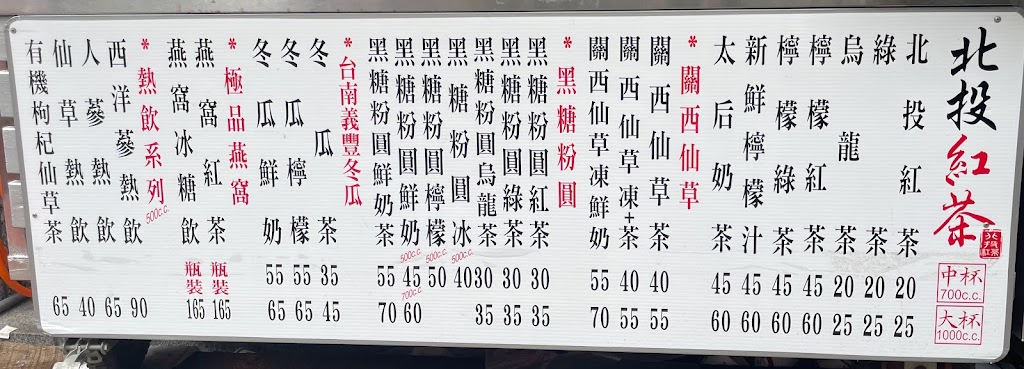 北投紅茶
北投紅茶
中杯
700c.c.
大杯
1000c.c.
北投紅茶 20 25
綠茶 20 25
烏龍茶 20 25
檸檬紅茶 45 60
檸檬綠茶 45 60
新鮮檸檬汁 45 60
太后奶茶 45 60
*關西仙草
關西仙草茶 40 55
關西仙草凍+茶 40 55
關西仙草凍鮮奶 55 70
*黑糖粉圓
黑糖粉圓紅茶 30 35
黑糖粉圓綠茶 30 35
黑糖粉圓烏龍茶 30 35
黑糖粉圓冰 500c.c. 40
黑糖粉圓檸檬 500c.c. 50
黑糖粉圓鮮奶 500c.c. 45 700c.c. 60
黑糖粉圓鮮奶茶 55 70
*台南義豐冬瓜
冬瓜茶 35 45
冬瓜檸檬 55 65
冬瓜鮮奶 55 65
*極品燕窩
燕窩紅茶 瓶裝 165
燕窩冰糖飲 瓶裝 165
*熱飲系列 500c.c.
西洋蔘熱飲 90
人蔘熱飲 65
仙草熱飲 40
有機枸杞仙草茶 65